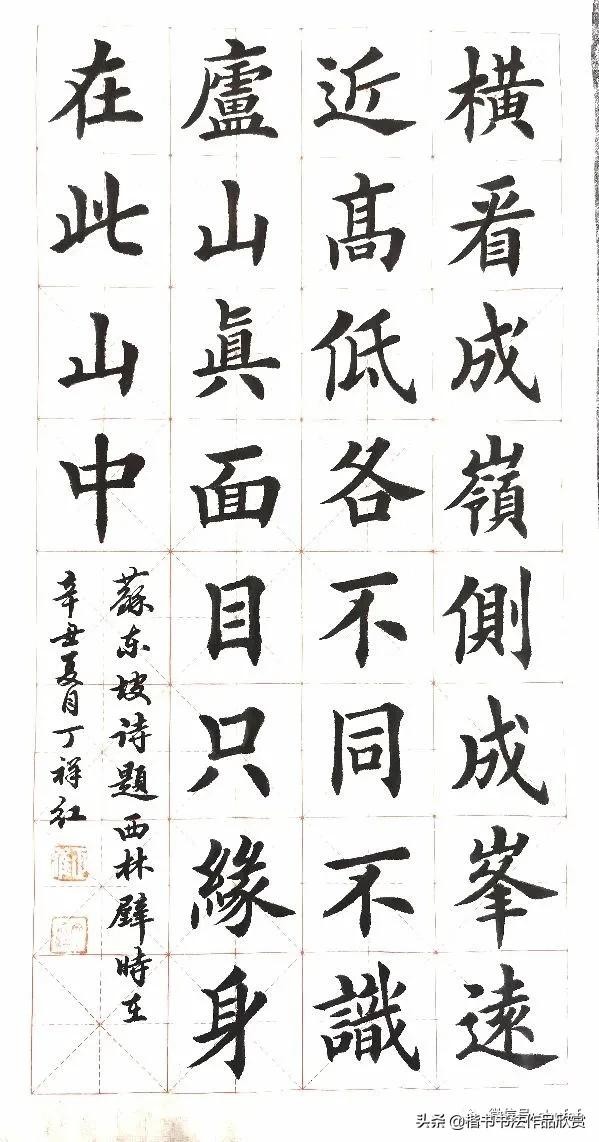 橫看成嶺側成峯遠
近高低各不同不識
廬山眞面目只緣身
在此山中
蘇东坡诗題西林壁時在
辛丑夏月丁祥红
头条@楷书书法作品欣赏